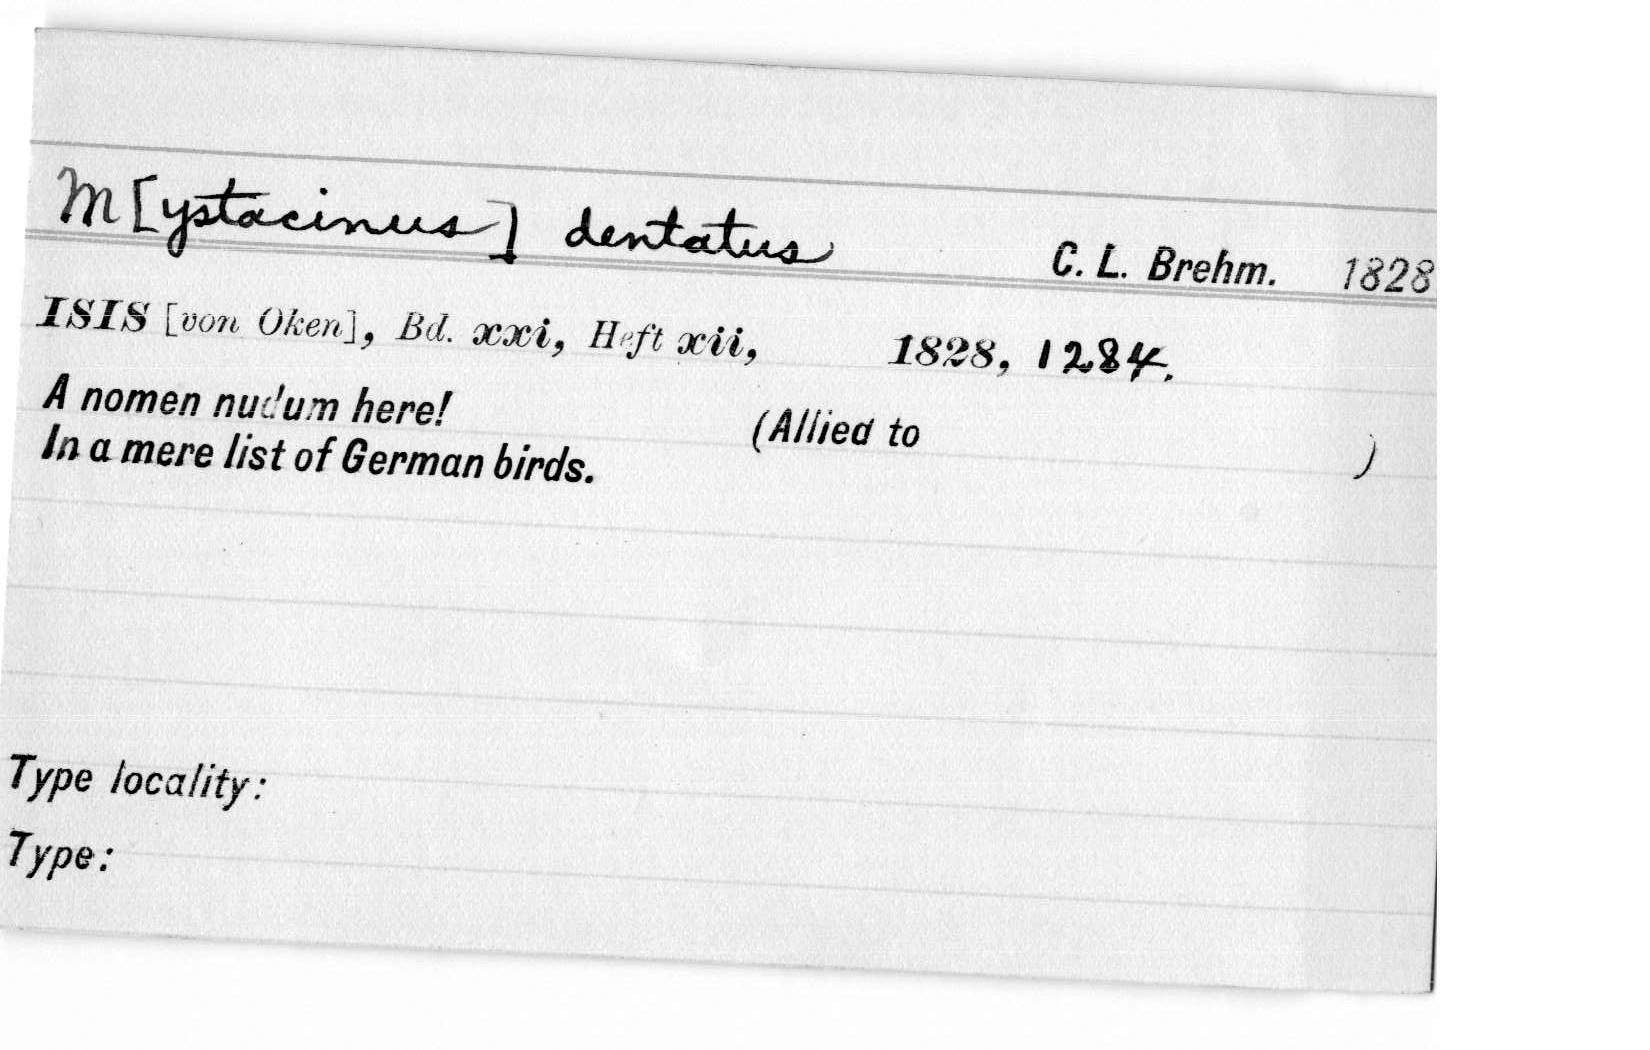 M[ystacinus] dentatus C. L. Brehm. 1828
ISIS [von Oken], Bd. xxi, Heft xii, 1828, 1284.
A nomen nudum here! (Allied to )
In a mere list of German birds.
Type locality:
Type: